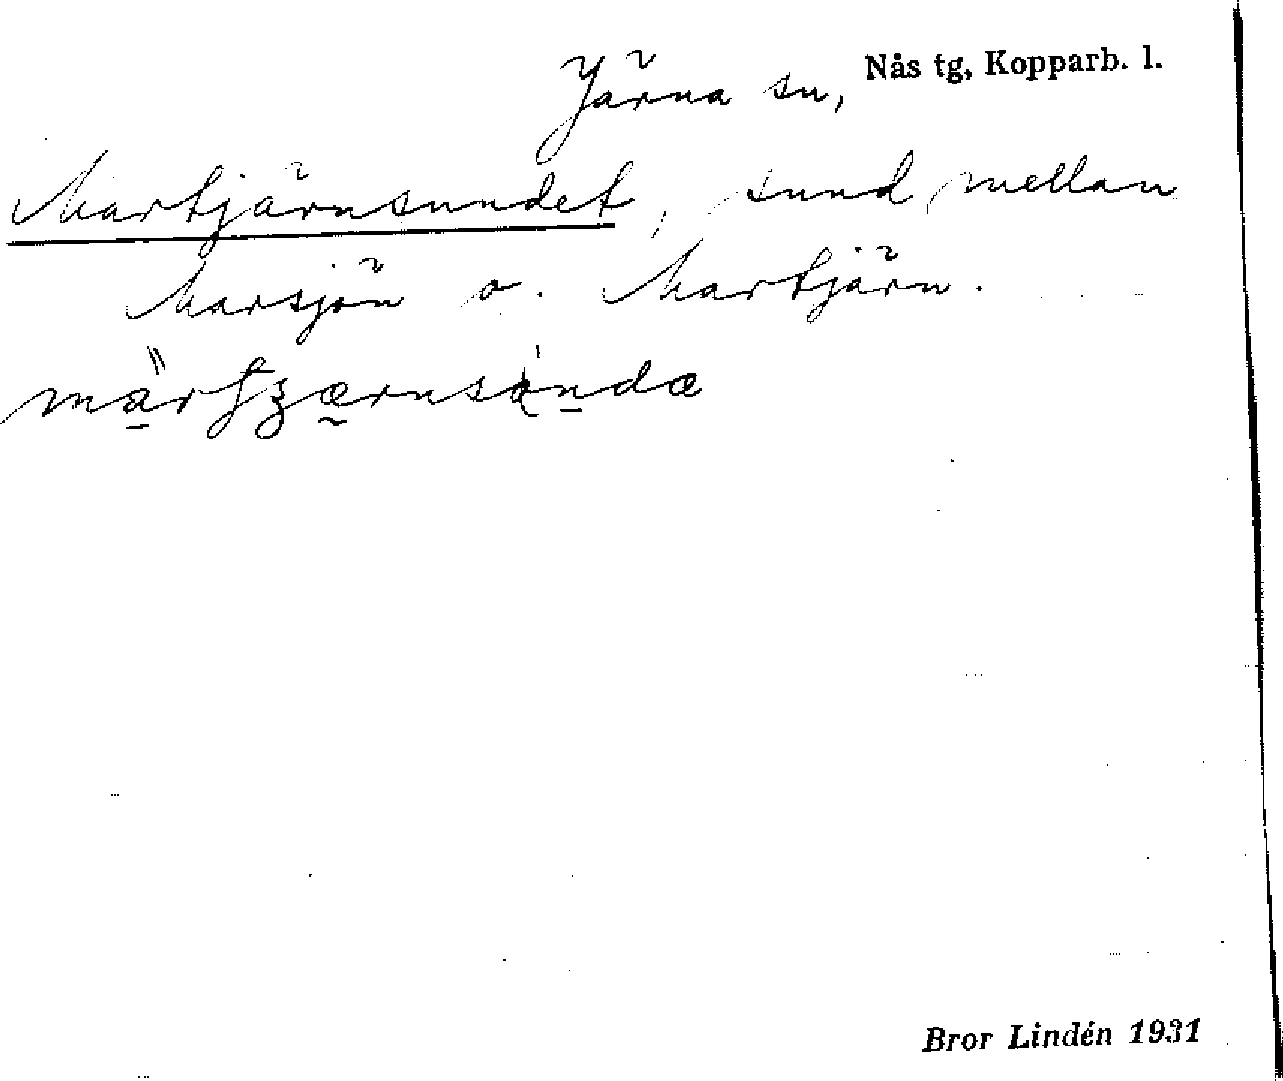 Järna sn, Nås tg, Kopparb. l.
Martjärnsundet, sund mellan
Marsjön o. Martjärn.
Bror Lindén 1931